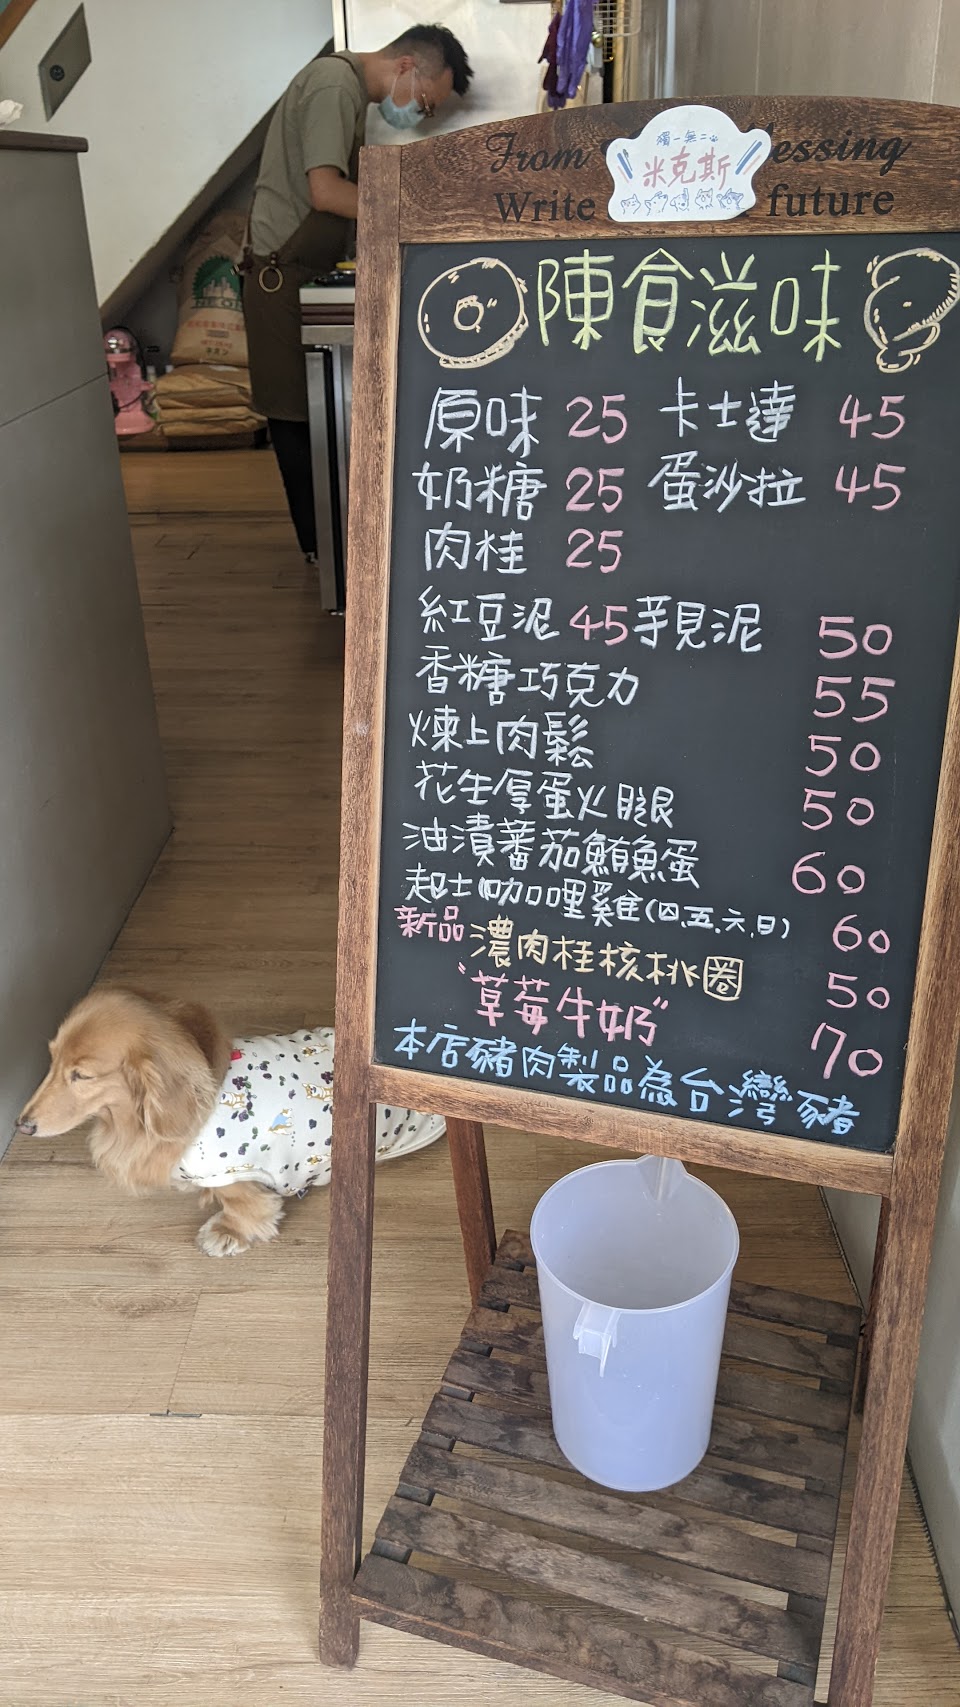 From essing
Write future
獨一無二
米克斯
陳食滋味
原味 25 卡士達 45
奶糖 25 蛋沙拉 45
肉桂 25
紅豆泥 45 芋見泥 50
香糖巧克力 55
煉上肉鬆 50
花生厚蛋火腿 50
油漬蕃茄鮪魚蛋 60
起士咖哩雞(四.五.六.日) 60
新品 濃肉桂核桃圈 50
"草莓牛奶" 70
本店豬肉製品為台灣豬